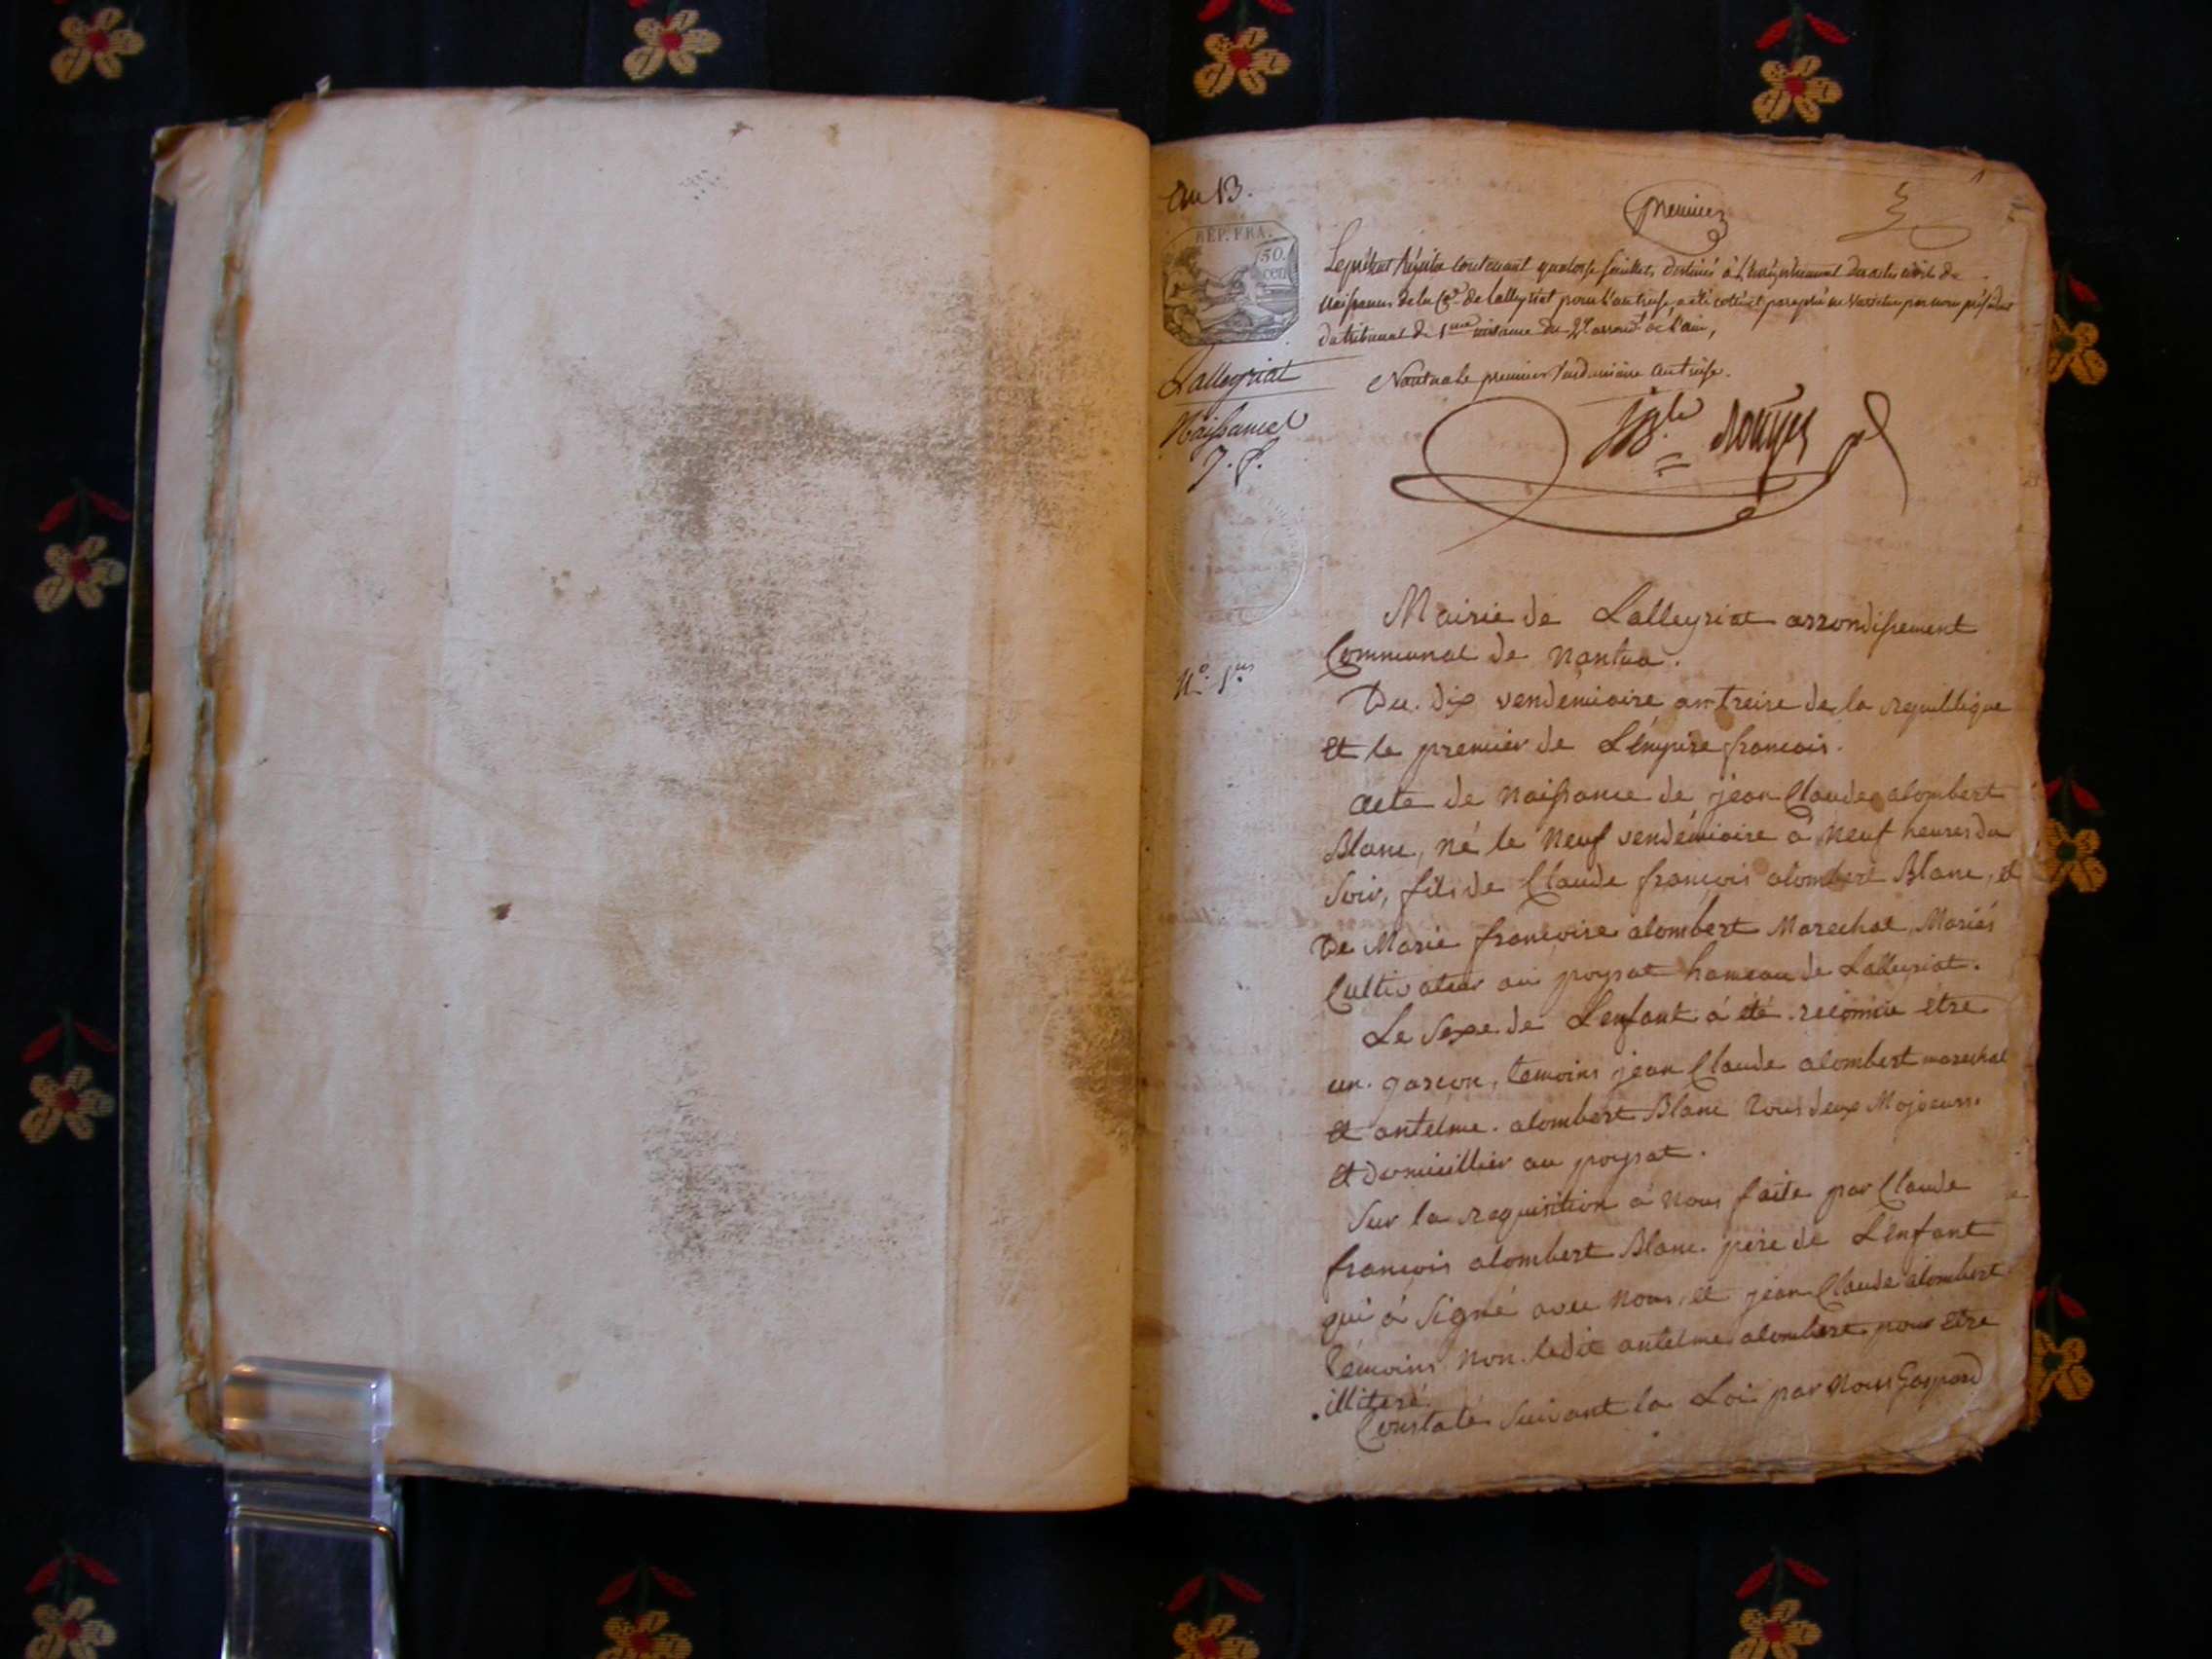 an 13.
premier
REP. FRA.
50.
cen
Le présent Régistre contenant quatorse feuillets destinés à l'enregistrement des actes civils de
naissances de la Cne de Lalleyriat pour l'an treise a été cotté et paraphé par nous président
du tribunal de 1ere instance du 2e arrond. de l'ain,
Nantua le premier Vendemiaire an treise.
Lalleyriat
Naissances
Mairie de Lalleyriat arrondissement
Communal de Nantua.
N.o 1.er
Du. dix vendemiaire an treise de la republique
et le premier de L'émpire francois.
acte de Naissance de jean Claude alombert
Blanc, né le Neuf vendémiaire à Neuf heures du
Soir, fils de Claude françois alombert Blanc, et
De Marie françoise alombert Marechal, Mariés
Cultivateur au poysat hameau de Lalleyriat.
Le Sexe de L'enfant à été reconnu etre
un. garcon, temoins jean Claude alombert marechal
et antelme. alombert Blanc tous deux Majeurs.
et domicillier au poysat.
Sur la requisition à Nous faite par Claude
françois alombert Blanc. père de L'enfant
qui à Signé avec Nous, et jean Claude alombert
témoins Non ledit antelme alombert pour Etre
illiteré.
Constaté Suivant la Loi par Nous Gaspard